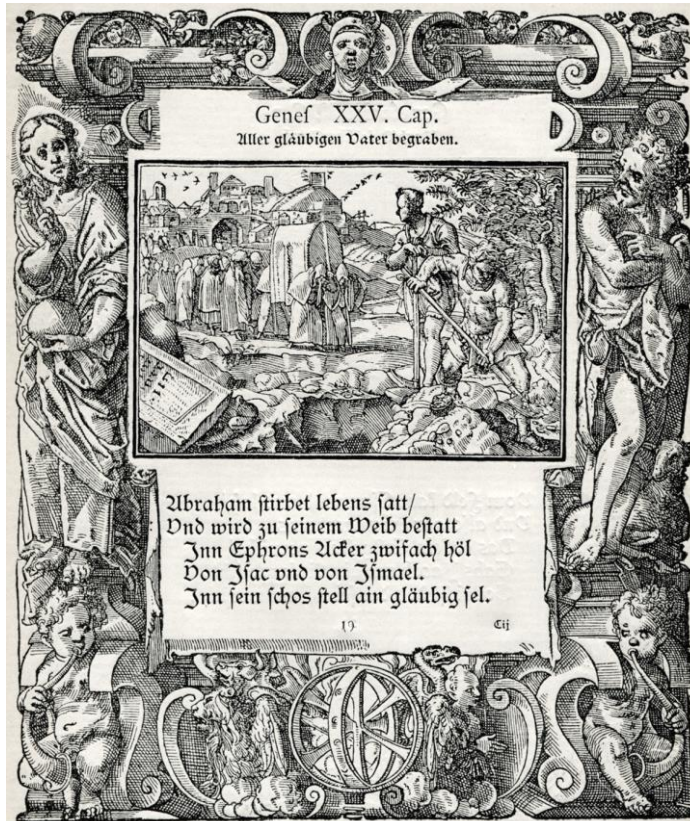 Geneſ XXV. Cap.
Aller gläubigen Vater begraben.
Abraham ſtirbet lebens ſatt/
Vnd wird zu ſeinem Weib beſtatt
Inn Ephrons Acker zwifach höl
Von Iſac vnd von Iſmael.
Inn ſein ſchos ſtell ain gläubig ſel.
19 Cij